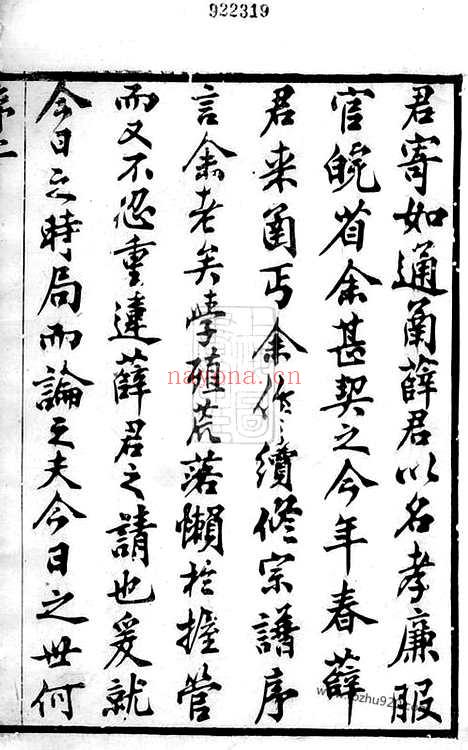 922319
君寄如通甬薛君以名孝廉服
官皖省余甚契之今年春薛
君来甬丐余作續修宗譜序
言余老矣學殖荒落懶於握管
而又不忍重違薛君之請也爰就
今日之時局而論之夫今日之世何
nayona.cn